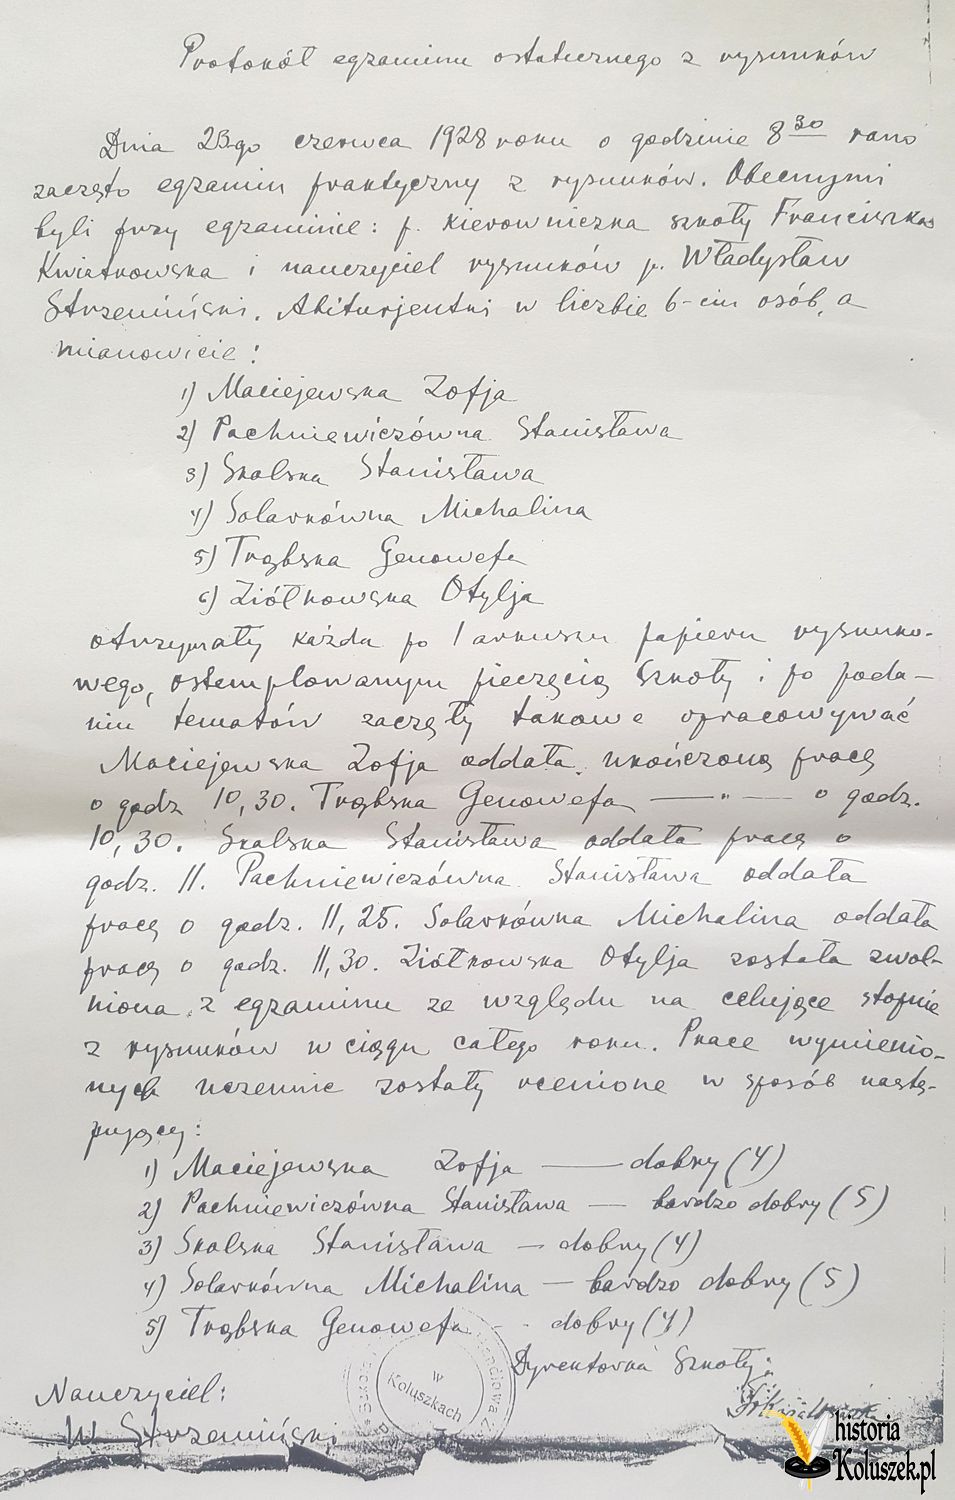 Protokół egzaminu ostatecznego z rysunków
Dnia 23-go czerwca 1928 roku o godzinie 8 30 rano
zaczęto egzamin praktyczny z rysunków. Obecnymi
byli przy egzaminie: p. kierowniczka szkoły Franciszka
Kwiatkowska i nauczyciel rysunków p. Władysław
Strzemiński. Abiturjentki w liczbie 6-ciu osób, a
mianowicie:
1) Maciejewska Zofja
2) Pachniewiczówna Stanisława
3) Skalska Stanisława
4) Solarkówna Michalina
5) Trąbska Genowefa
6) Ziółkowska Otylja
otrzymały każda po 1 arkuszu papieru rysunko-
wego, ostemplowanym pieczęcią szkoły i po poda-
niu tematów zaczęły takowe opracowywać
Maciejewska Zofja oddała ukończoną pracę
o godz 10,30. Trąbska Genowefa — " — o godz.
10,30. Skalska Stanisława oddała pracę o
godz. 11. Pachniewiczówna Stanisława oddała
pracę o godz. 11,25. Solarkówna Michalina oddała
pracę o godz. 11,30. Ziółkowska Otylja została zwol-
niona z egzaminu ze względu na celujące stopnie
z rysunków w ciągu całego roku. Prace wymienio-
nych uczennic zostały ocenione w sposób nastę-
pujący:
1) Maciejewska Zofja — dobry (4)
2) Pachniewiczówna Stanisława — bardzo dobry (5)
3) Skalska Stanisława — dobry (4)
4) Solarkówna Michalina — bardzo dobry (5)
5) Trąbska Genowefa - - dobry (4)
Dyrektorka Szkoły:
w
Koluszkach
Nauczyciel:
W Strzemiński
historia
Koluszek.pl